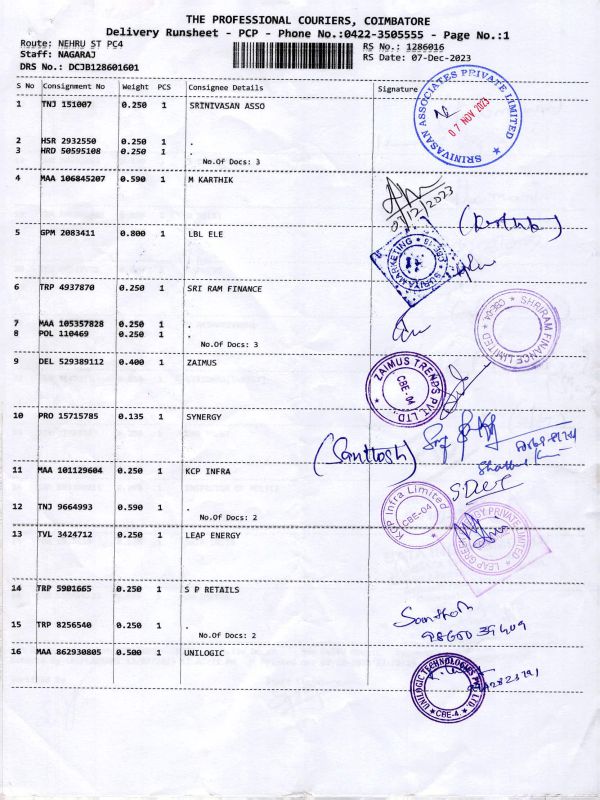 THE PROFESSIONAL COURIERS, COIMBATORE
Delivery Runsheet - PCP - Phone No.:0422-3505555 - Page No.:1
Route: NEHRU ST PC4
Staff: NAGARAJ
DRS No.: DCJB128601601
RS No.: 1286016
RS Date: 07-Dec-2023
S No Consignment No Weight PCS Consignee Details Signature
1 TNJ 151007 0.250 1 SRINIVASAN ASSO
SRINIVASAN ASSOCIATES PRIVATE LIMITED
07 NOV 2023
2 HSR 2932550 0.250 1 .
3 HRD 50595108 0.250 1 .
No.Of Docs: 3
4 MAA 106845207 0.590 1 M KARTHIK
07/12/2023
5 GPM 2083411 0.800 1 LBL ELE
SURYA MARKETING
6 TRP 4937870 0.250 1 SRI RAM FINANCE
SHRIRAM FINANCE LIMITED
7 MAA 105357828 0.250 1 .
8 POL 110469 0.250 1 .
No.Of Docs: 3
9 DEL 529389112 0.400 1 ZAIMUS
ZAIMUS TRENDS PVT. LTD
CBE-04
10 PRO 15715785 0.135 1 SYNERGY
(Santtosh)
11 MAA 101129604 0.250 1 KCP INFRA
KCP Infra Limited
CBE-04
12 TNJ 9664993 0.590 1 .
No.Of Docs: 2
13 TVL 3424712 0.250 1 LEAP ENERGY
LEAP GREEN ENERGY PRIVATE LIMITED
14 TRP 5901665 0.250 1 S P RETAILS
Santhosh
15 TRP 8256540 0.250 1 .
No.Of Docs: 2
16 MAA 862930805 0.500 1 UNILOGIC
UNILOGIC TECHNOLOGIES PVT LTD.
CBE-4.